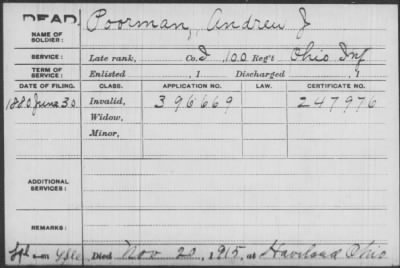 DEAD.
NAME OF SOLDIER: Poorman, Andrew J
SERVICE: Late rank, Co. I 100 Reg't Ohio Inf
TERM OF SERVICE: Enlisted , 1 Discharged , 1
DATE OF FILING. CLASS. APPLICATION NO. LAW. CERTIFICATE NO.
1880 June 30 Invalid, 396669 247976
Widow,
Minor,
ADDITIONAL SERVICES:
REMARKS:
Died Nov 20, 1915, at Haviland Ohio